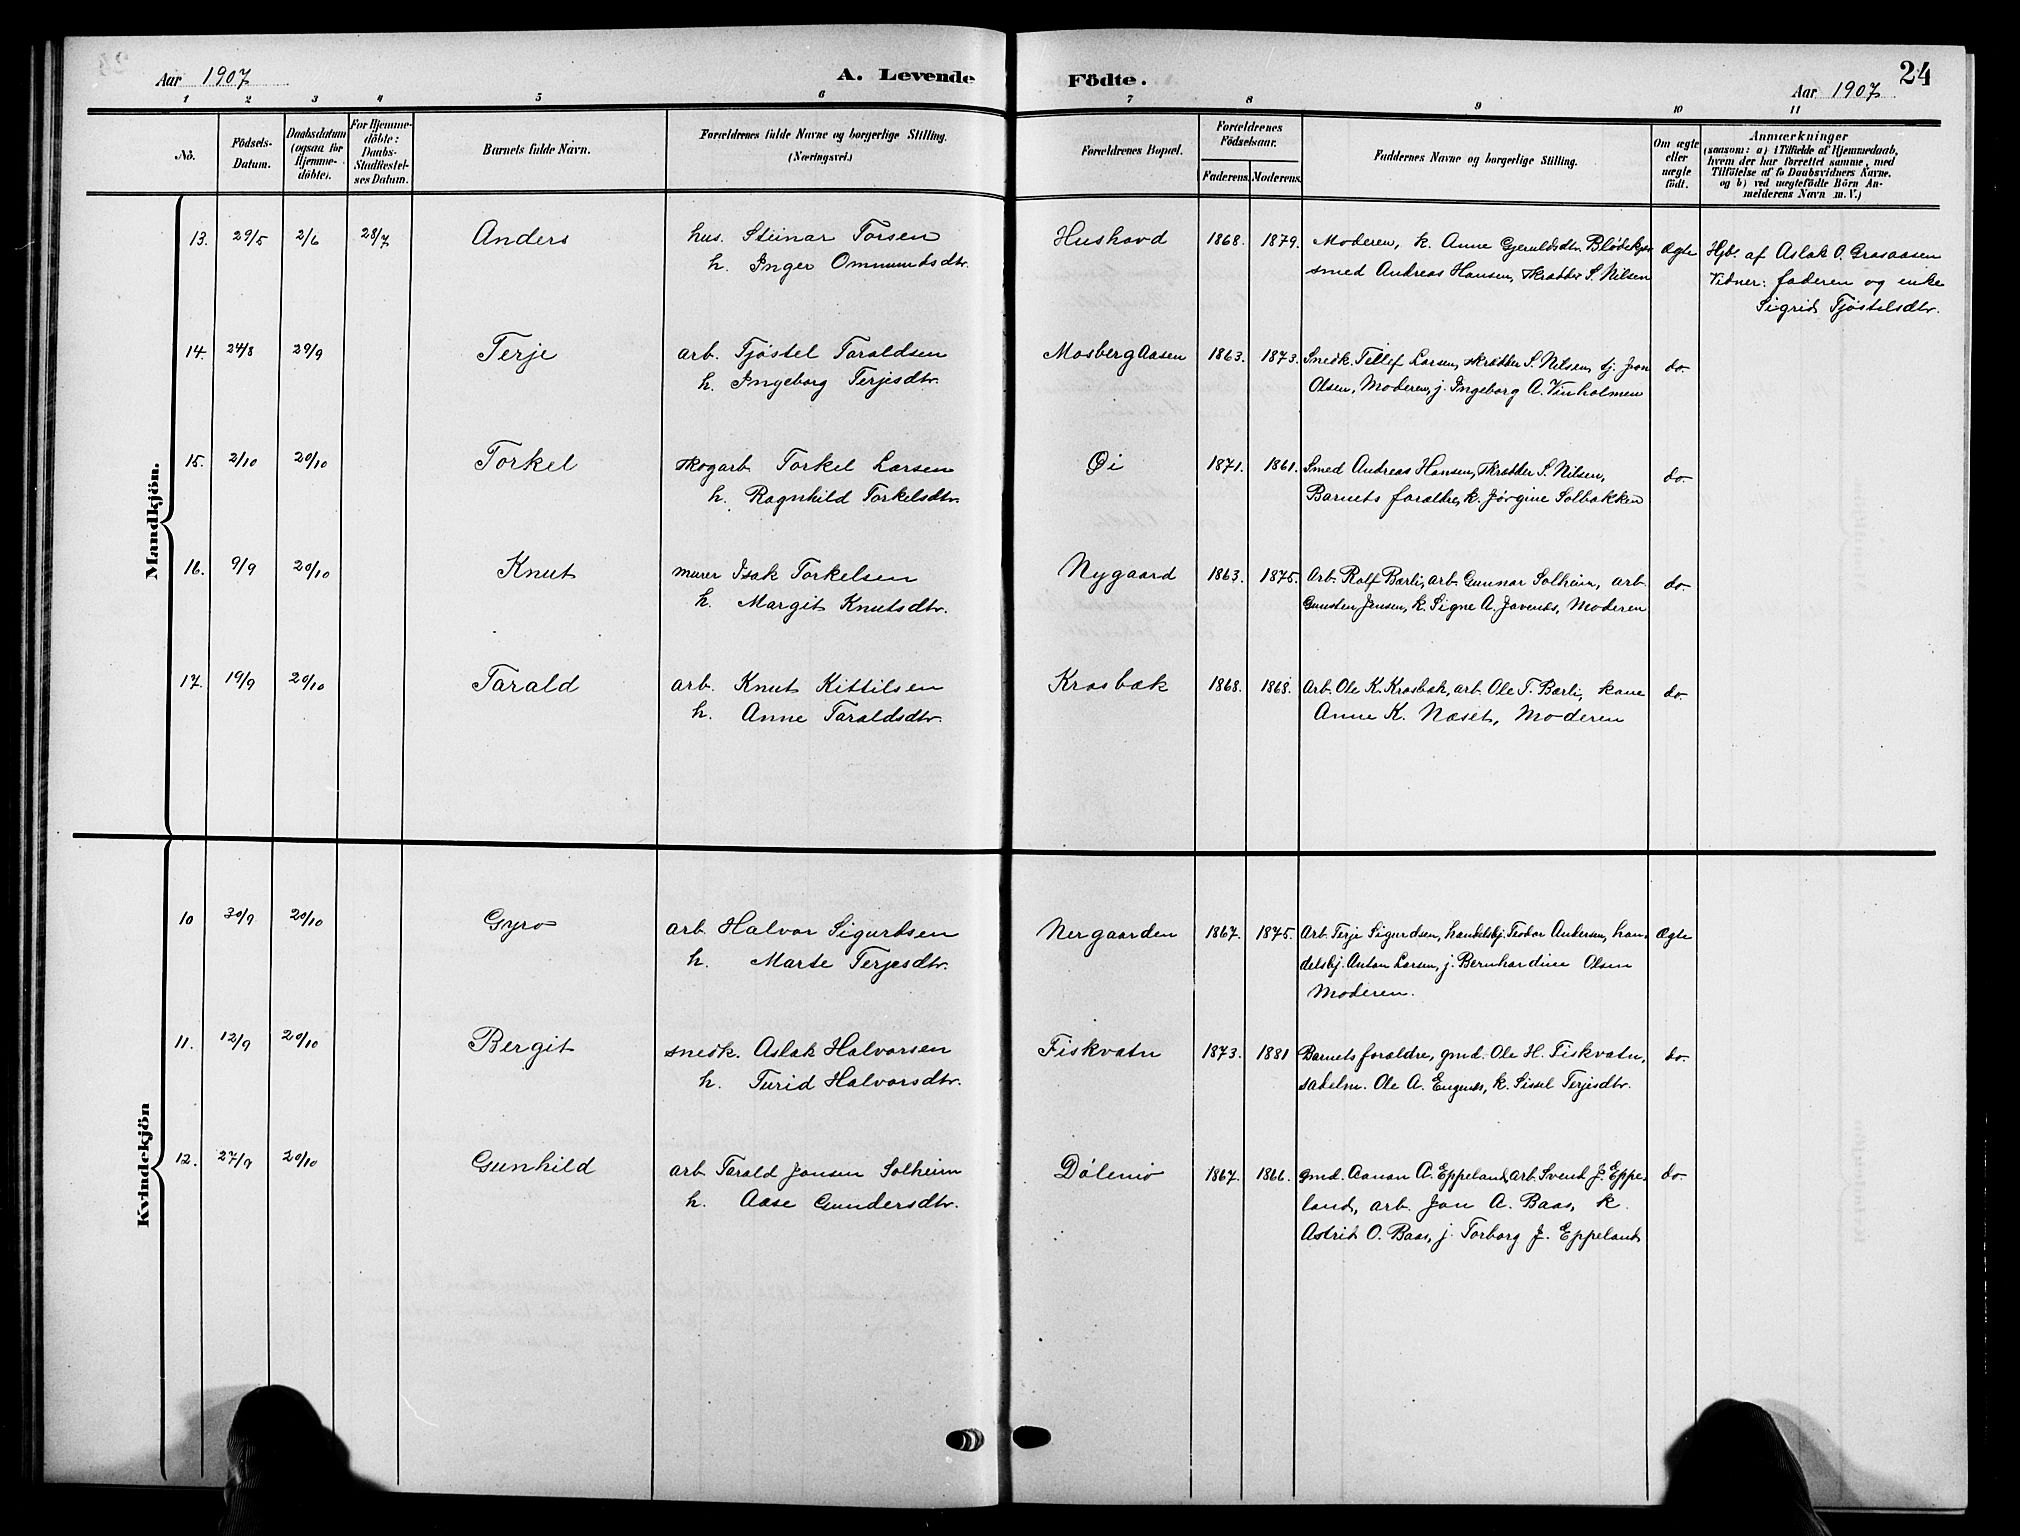 Aar 1907
A. Levende
Födte.
24
Aar 1907
1 2 3 4 5 6 7 8 9 10 11
No.
Födsels-Datum.
Daabsdatum (ogsaa for Hjemme-döbte).
For Hjemme-döbte: Daabs-Stadfæstel-ses Datum.
Barnets fulde Navn.
Forældrenes fulde Navne og borgerlige Stilling. (Næringsvei.)
Forældrenes Bopæl.
Forældrenes Födselsaar.
Faderens. Moderens.
Faddernes Navne og borgerlige Stilling.
Om ægte eller uægte födt.
Anmærkninger
(saasom: a) i Tilfælde af Hjemmedaab,
hvem der har forrettet samme, med
Tilföielse af to Daabsvidners Navne.
og b) ved uægtefödte Börn An-
melderens Navn m. V.)
Mandkjön.
13. 29/5 2/6 28/7 Anders hus. Steinar Torsen Hushovd 1868. 1879. Moderen, k. Anne Gjeruldsdtr. Blödekjær Ægte Hjb. af Aslak O. Grasaasen
h. Inger Ommundsdtr. smed Andreas Hansen, skrædder S. Nilsen Vidner: faderen og enke
Sigrid Tjöstelsdtr.
14. 24/8 29/9 Terje arb. Tjöstel Taraldsen Mosberg Aasen 1863. 1873. Snedk. Tellef Larsen, skrædder S. Nilsen, Jon do.
h. Ingeborg Terjesdtr. Olsen, Moderen, j. Ingeborg A. Vinholmen
15. 2/10 20/10 Torkel skogarb. Torkel Larsen Öi 1871. 1861. Smed Andreas Hansen, skrædder S. Nilsen, do.
h. Ragnhild Torkelsdtr. Barnets forældre, k. Jörgine Solbakken
16. 9/9 20/10 Knut murer Isak Torkelsen Nygaard 1863. 1875. Arb. Rolf Bærli, arb. Gunnar Solheim, arb. do.
h. Margit Knutsdtr. Gunsten Jensen, k. Signe A. Jovenes, Moderen
17. 19/9 20/10 Tarald arb. Knut Kittilsen Krosbæk 1868. 1868. Arb. Ole K. Krosbæk, arb. Ole T. Bærli, kone do.
h. Anne Taraldsdtr. Anne K. Næset, Moderen
Kvindekjön
10 30/9 20/10 Gyro arb. Halvor Sigurdsen Nergaarden 1867. 1875. Arb. Terje Sigurdsen, handelsbj. Teodor Andersen, han- Ægte
h. Marte Terjesdtr. delsbj. Anton Larsen, j. Bernhardine Olsen
Moderen.
11. 12/9 20/10 Bergit snedk. Aslak Halvorsen Fiskvatn 1873. 1881 Barnets forældre, gmd. Ole H. Fiskvatn, do.
h. Turid Halvorsdtr. sadelm. Ole A. Engenes, k. Sissel Terjesdtr.
12. 27/9 20/10 Gunhild arb. Tarald Jonsen Solheim Dölemo 1867. 1866. gmd. Aanon A. Eppeland, arb. Svend J. Eppe- do.
h. Aase Gundersdtr. land, arb. Jon A. Baas, k.
Astrid O. Baas, j. Torborg J. Eppeland